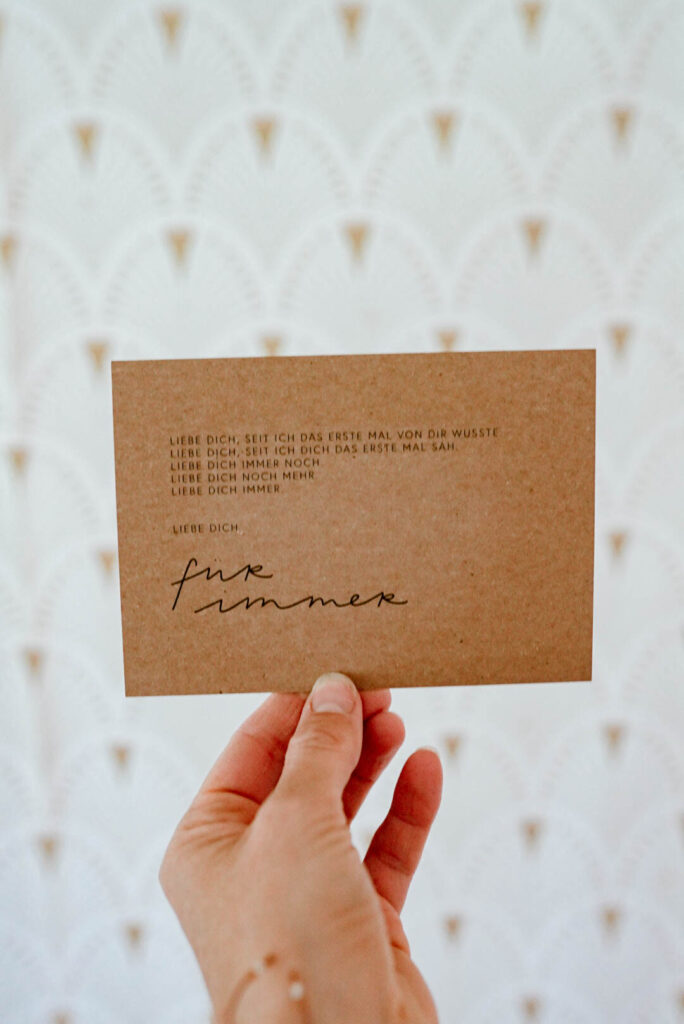 LIEBE DICH, SEIT ICH DAS ERSTE MAL VON DIR WUSSTE
LIEBE DICH, SEIT ICH DICH DAS ERSTE MAL SAH.
LIEBE DICH IMMER NOCH.
LIEBE DICH NOCH MEHR
LIEBE DICH IMMER.
LIEBE DICH.
für
immer